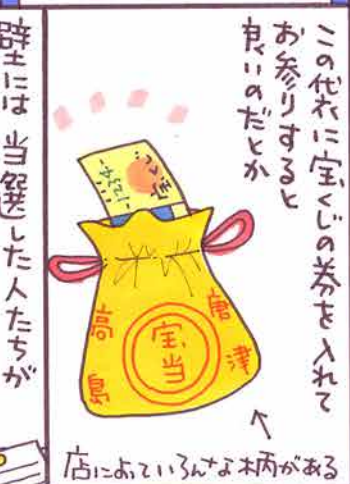 この袋に宝くじの券を入れて
お参りすると
良いのだとか
宝くじ
唐津
宝当
高島
店によっていろんな柄がある
壁には当選した人たちが